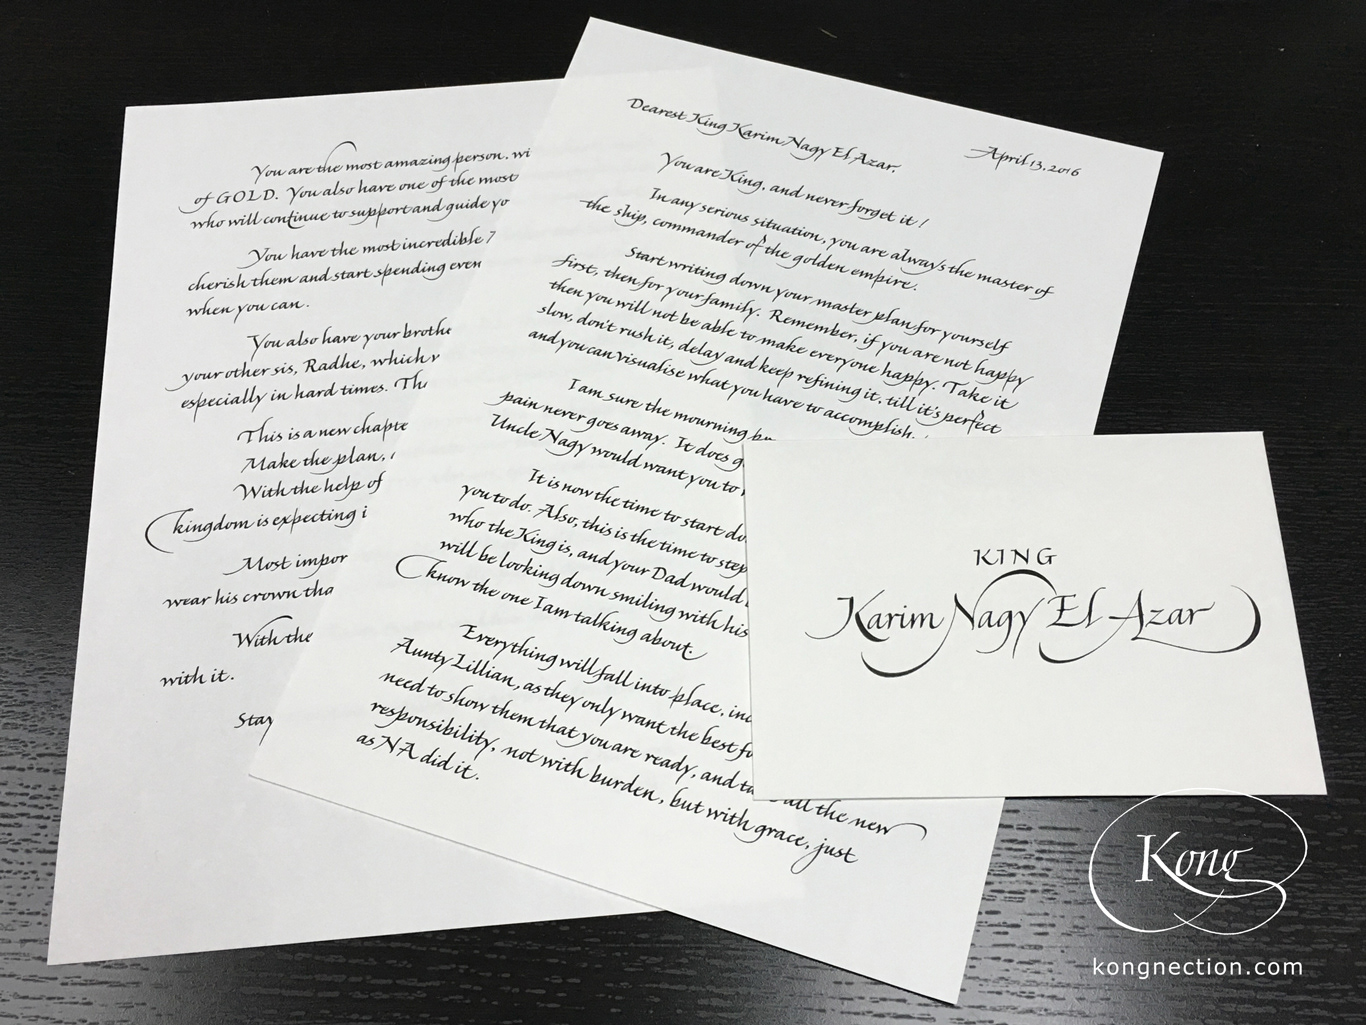 Dearest King Karim Nagy El Azar,
April 13, 2016
You are King, and never forget it!
In any serious situation, you are always the master of
the ship, commander of the golden empire.
Start writing down your master plan for yourself
first, then for your family. Remember, if you are not happy
then you will not be able to make everyone happy. Take it
slow, don't rush it, delay and keep refining it, till it's perfect
and you can visualise what you have to accomplish.
I am sure the mourning
pain never goes away. It does
Uncle Nagy would want you to
It is now the time to start
you to do. Also, this is the time to step
who the King is, and your Dad would
will be looking down smiling with his
know the one I am talking about.
Everything will fall into place,
Aunty Lillian, as they only want the best
need to show them that you are ready, and all the new
responsibility, not with burden, but with grace, just
as NA did it.
You are the most amazing person,
of GOLD. You also have one of the most
who will continue to support and guide
You have the most incredible
cherish them and start spending
when you can.
You also have your
your other sis, Radhe, which
especially in hard times.
This is a new
Make the plan,
With the help of
kingdom is expecting
Most
wear his crown
With the
with it.
KING
Karim Nagy El Azar
Kong
kongnection.com